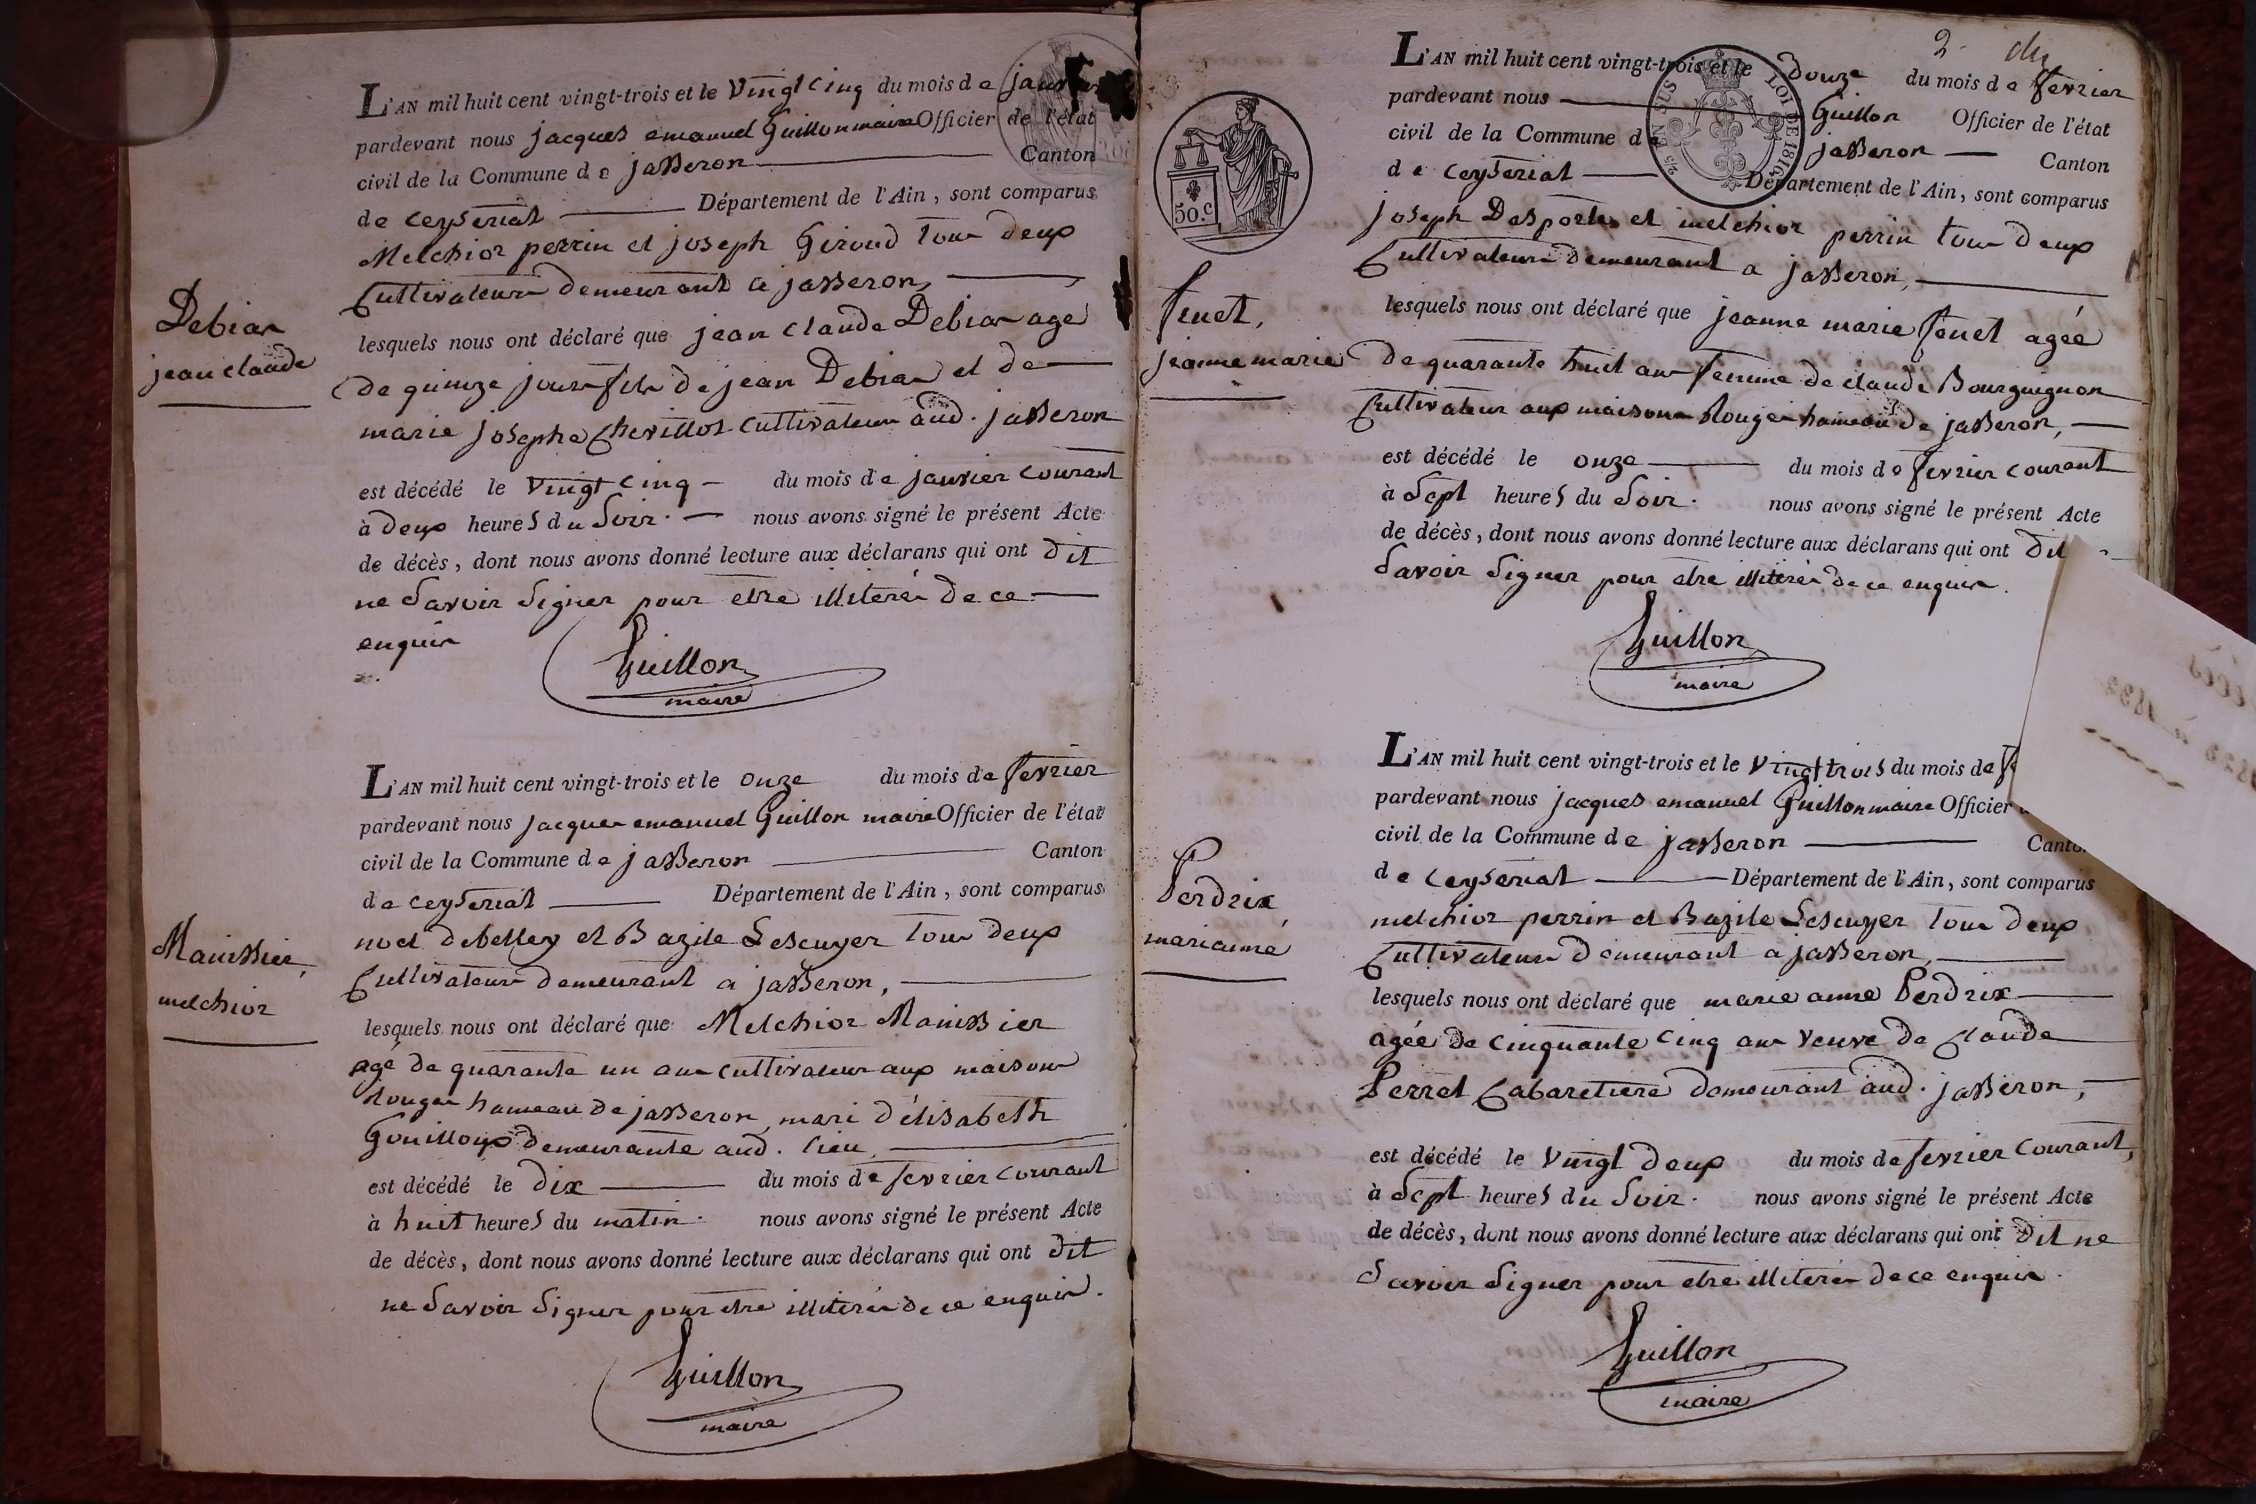 L'AN mil huit cent vingt-trois et le vingt cinq du mois de janvier
pardevant nous jacques emanuel Guillon maire Officier de l'état
civil de la Commune de jasseron Canton
de ceyseriat Département de l'Ain, sont comparus
Melchior perrin et joseph Giroud tous deux
Cultivateurs demeurant a jasseron,
Debias
jean claude
lesquels nous ont déclaré que jean claude Debias agé
de quinze jours fils de jean Debias et de
marie josephe Chevillot cultivateurs aud. jasseron
est décédé le vingt cinq du mois de janvier courant
à deux heures du Soir. nous avons signé le présent Acte
de décès, dont nous avons donné lecture aux déclarans qui ont dit
ne Savoir Signer pour etre illiterés de ce
enquis
Guillon
maire
L'AN mil huit cent vingt-trois et le onze du mois de fevrier
pardevant nous jacques emanuel Guillon maire Officier de l'état
civil de la Commune de jasseron Canton
de ceyseriat Département de l'Ain, sont comparus
noel debelley et Bazile Lescuyer tous deux
Cultivateurs demeurant a jasseron,
Manissier,
melchior
lesquels nous ont déclaré que Melchior Manissier
agé de quarante un ans cultivateur aux maisons
Rouges hameau de jasseron, mari d'élisabeth
Gouilloux demeurante aud. lieu,
est décédé le dix du mois de fevrier courant
à huit heures du matin. nous avons signé le présent Acte
de décès, dont nous avons donné lecture aux déclarans qui ont dit
ne Savoir Signer pour etre illiterés de ce enquis.
Guillon
maire
2
L'AN mil huit cent vingt-trois et le douze du mois de fevrier
pardevant nous Guillon Officier de l'état
civil de la Commune de jasseron Canton
de ceyseriat Département de l'Ain, sont comparus
LOI DE 1816
50.c
joseph Desportes et melchior perrin tous deux
Cultivateurs demeurant a jasseron,
fenet,
jeanne marie
lesquels nous ont déclaré que jeanne marie fenet agée
de quarante huit ans femme de claude Bourguignon
Cultivateur aux maisons Rouges hameau de jasseron,
est décédé le onze du mois de fevrier courant
à Sept heures du Soir. nous avons signé le présent Acte
de décès, dont nous avons donné lecture aux déclarans qui ont dit
Savoir Signer pour etre illiterés de ce enquis.
Guillon
maire
L'AN mil huit cent vingt-trois et le vingt trois du mois de
pardevant nous jacques emanuel Guillon maire Officier
civil de la Commune de jasseron Canto
de ceyseriat Département de l'Ain, sont comparus
melchior perrin et Bazile Lescuyer tous deux
Cultivateurs demeurant a jasseron,
Perdrix,
marieanne
lesquels nous ont déclaré que marie anne Perdrix
agée de cinquante cinq ans veuve de Claude
Perret Cabaretiere demeurant aud. jasseron,
est décédé le vingt deux du mois de fevrier courant,
à Sept heures du Soir. nous avons signé le présent Acte
de décès, dont nous avons donné lecture aux déclarans qui ont dit ne
Savoir Signer pour etre illiterés de ce enquis.
Guillon
maire